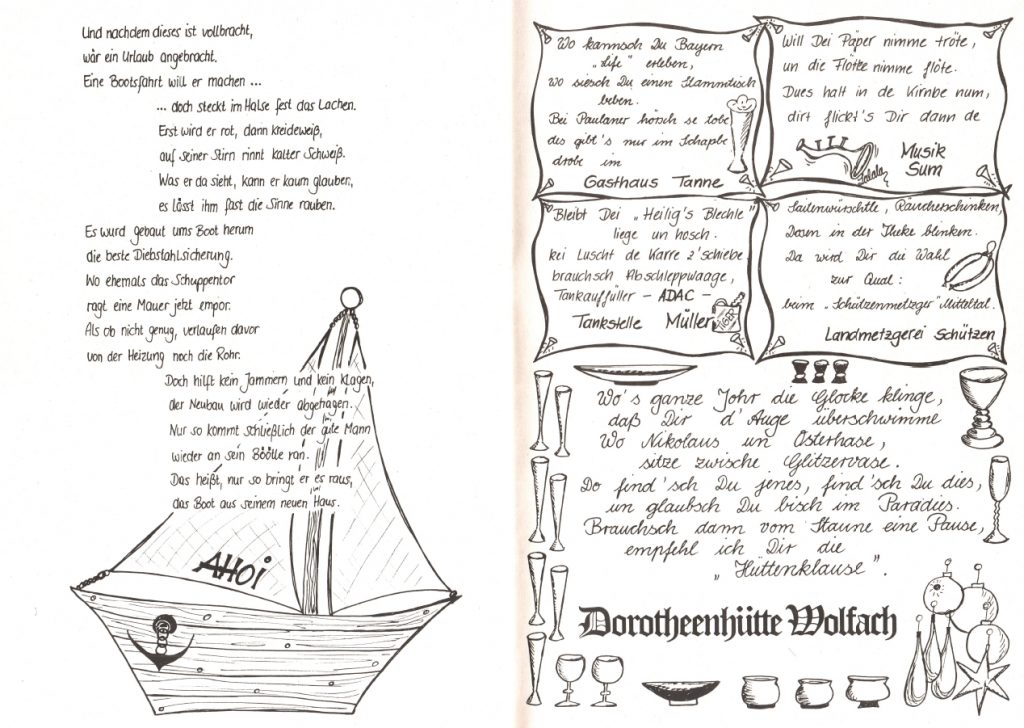 Und nachdem dieses ist vollbracht,
wär ein Urlaub angebracht.
Eine Bootsfahrt will er machen ...
... doch steckt im Halse fest das Lachen.
Erst wird er rot, dann kreideweiß,
auf seiner Stirn rinnt kalter Schweiß.
Was er da sieht, kann er kaum glauben,
es läßt ihm fast die Sinne rauben.
Es wurd gebaut ums Boot herum
die beste Diebstahlsicherung.
Wo ehemals das Schuppentor
ragt eine Mauer jetzt empor.
Als ob nicht genug, verlaufen davor
von der Heizung noch die Rohr.
Doch hilft kein Jammern und kein Klagen,
der Neubau wird wieder abgetragen.
Nur so kommt schließlich der gute Mann
wieder an sein Böötle ran.
Das heißt, nur so bringt er es raus,
das Boot aus seinem neuen Haus.
AHOI
Wo kannsch Du Bayern
"Life" erleben,
wo siesch Du einen Stammtisch
beben.
Bei Paulaner hörsch se tobe
des gibt's nur im Schapbe
drobe im
Gasthaus Tanne
Will Dei Päper nimme tröte,
un die Flöte nimme flöte.
Dues halt in de Kirnbe num,
dirt flickt's Dir dann de
Musik
Sum
lalala
Bleibt Dei "Heilig's Blechle"
liege un hosch.
kei Luscht de Karre z'schiebe
brauchsch Abschleppwaage,
Tankauffüller - ADAC -
Tankstelle Müller
TIGER
Saitenwürschtle, Räucherschinken,
Dosen in der Theke blinken.
Da wird Dir die Wahl
zur Qual:
beim "Schützenmetzger" Mitteltal.
Landmetzgerei Schützen
Wo's ganze Johr die Glocke klinge,
daß Dir d'Auge überschwimme
Wo Nikolaus un Osterhase,
sitze zwische Glitzervase.
Do find'sch Du jenes, find'sch Du dies,
un glaubsch Du bisch im Paradies.
Brauchsch dann vom Staune eine Pause,
empfehl ich Dir die
"Hüttenklause".
Dorotheenhütte Wolfach